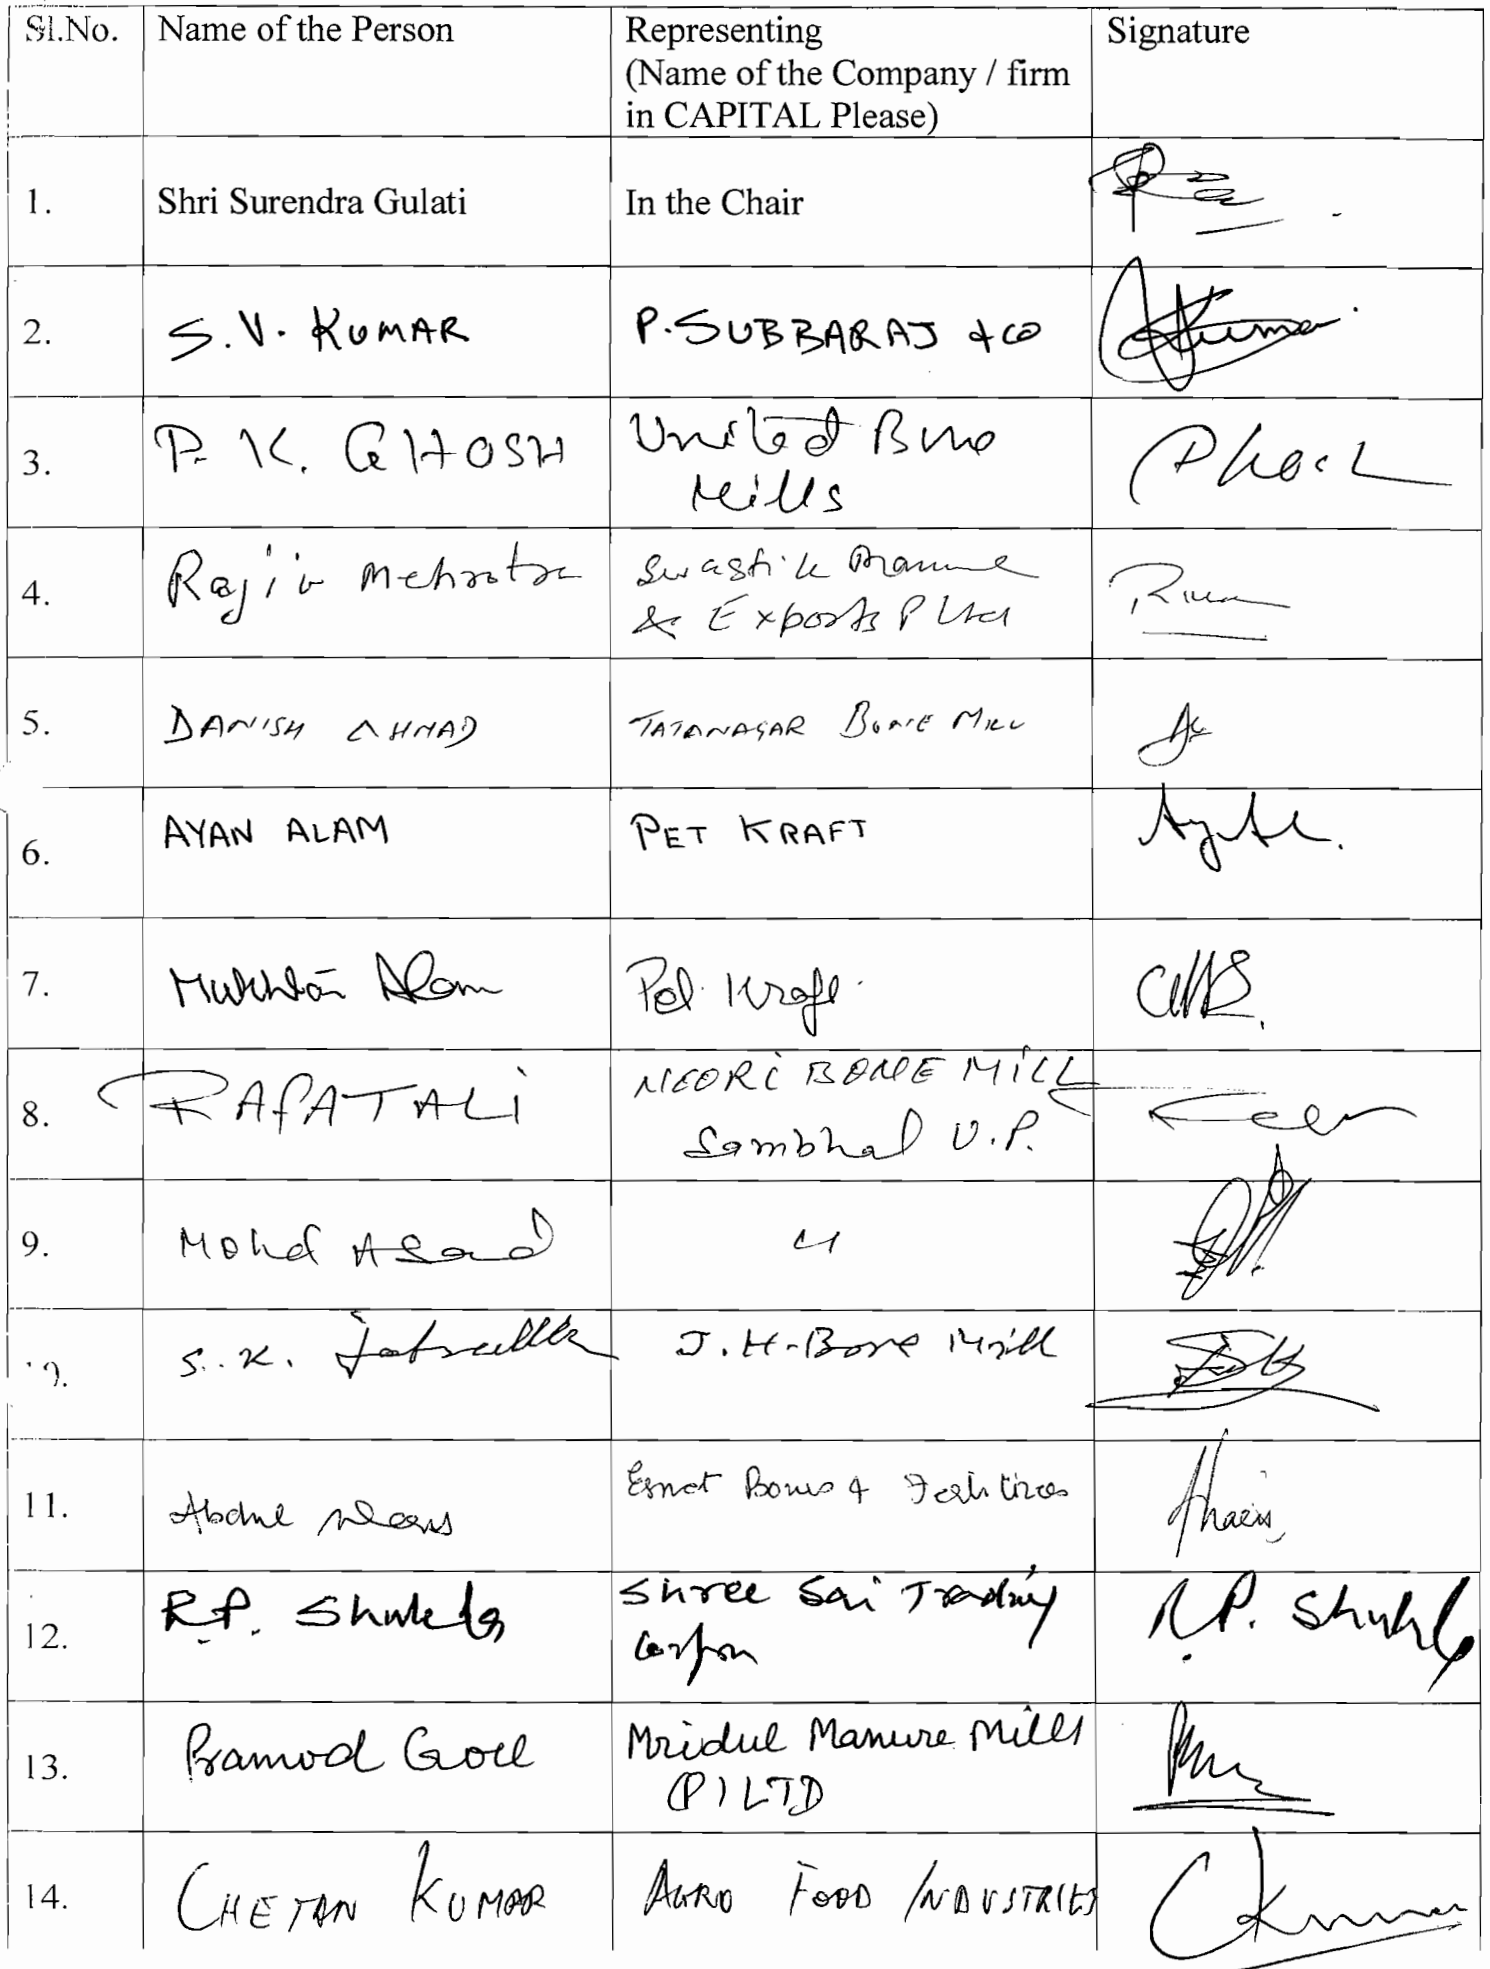 Sl.No. Name of the Person Representing (Name of the Company / firm in CAPITAL Please) Signature
1. Shri Surendra Gulati In the Chair
2. S.V. KUMAR P. SUBBARAJ & CO
3. P. K. GHOSH United Bone
Mills
4. Rajiv Mehrotra Swastik Manure
& Exports P Ltd
5. DANISH AHMAD TATANAGAR BONE MILL
6. AYAN ALAM PET KRAFT
7. Mukhtar Alam Pet Kraft
8. RAFAT ALI NEORI BONE MILL
Sambhal U.P.
9. Mohd Asad
S. K. J.H. Bone Mill
11. Abdul Bones &
12. R.P. Shukla Shree Sai Trading R.P. Shukla
Corpn
13. Pramod Goel Mridul Manure Mills
(P) LTD
14. CHETAN KUMAR AGRO FOOD INDUSTRIES